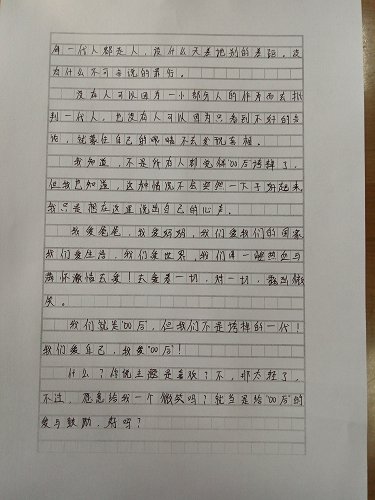 每一代人都是人，没什么天差地别的差距，没
有什么不可去说的豪行。
没有人可以因为一小部分人的作为而去批
判一代人，也没有人可以因为只看到不好的言
论，就蒙住自己的眼睛不去看说真相。
我知道，不是所有人都觉得“00后”垮掉了，
但我也知道，这种情况不会突然一下子好起来
我只是想在这里说出自己的心声。
我爱爸爸，我爱妈妈，我们爱我们的国家
我们爱生活，我们爱世界，我们用一腔热血与
满怀激情去爱！去爱着一切，对一切，露出微
笑。
我们就是“00后”，但我们不是垮掉的一代！
我们爱自己，我爱“00后”！
什么？你说主题是喜欢？不，那太轻了，
不过，愿意给我一个微笑吗？就当是给“00后”的
爱与鼓励，好吗？